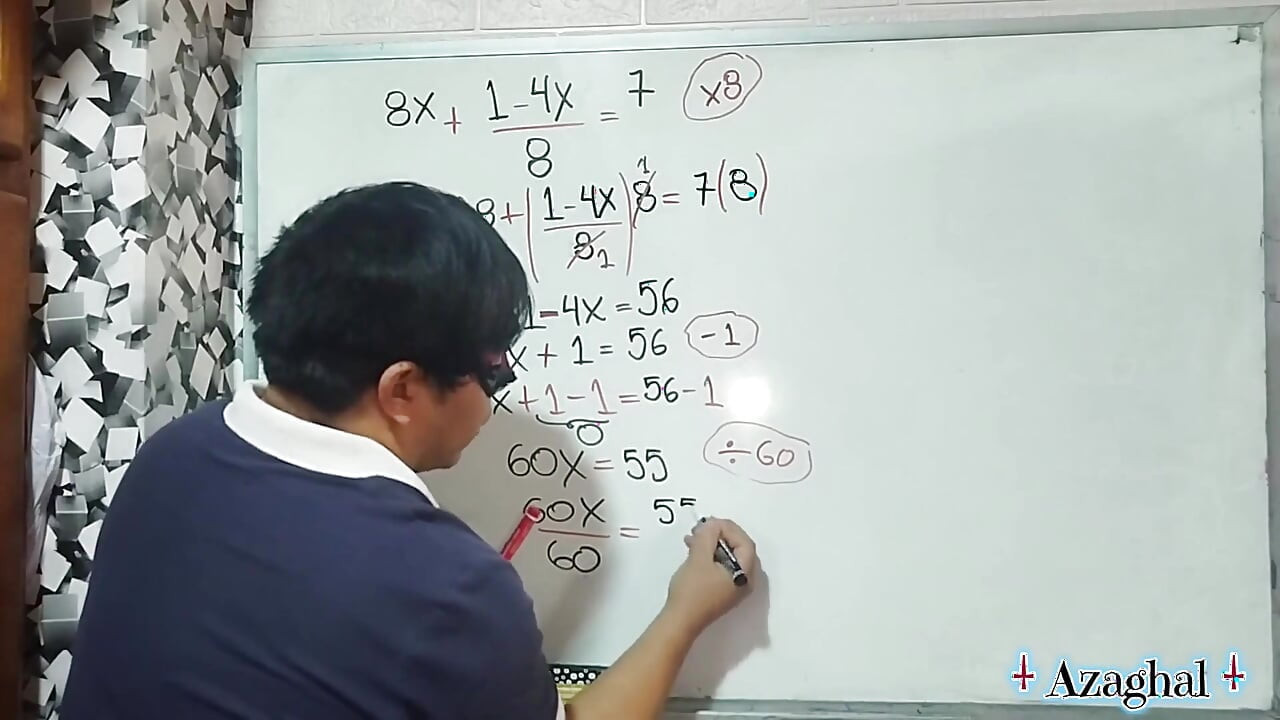 8x + 1-4x = 7 ×8
8
8 + (1-4x) 8 1 = 7(8)
8 1
1-4x = 56
x + 1 = 56 -1
x + 1 - 1 = 56 - 1
0
60x = 55 ÷60
60x = 55
60
Azaghal